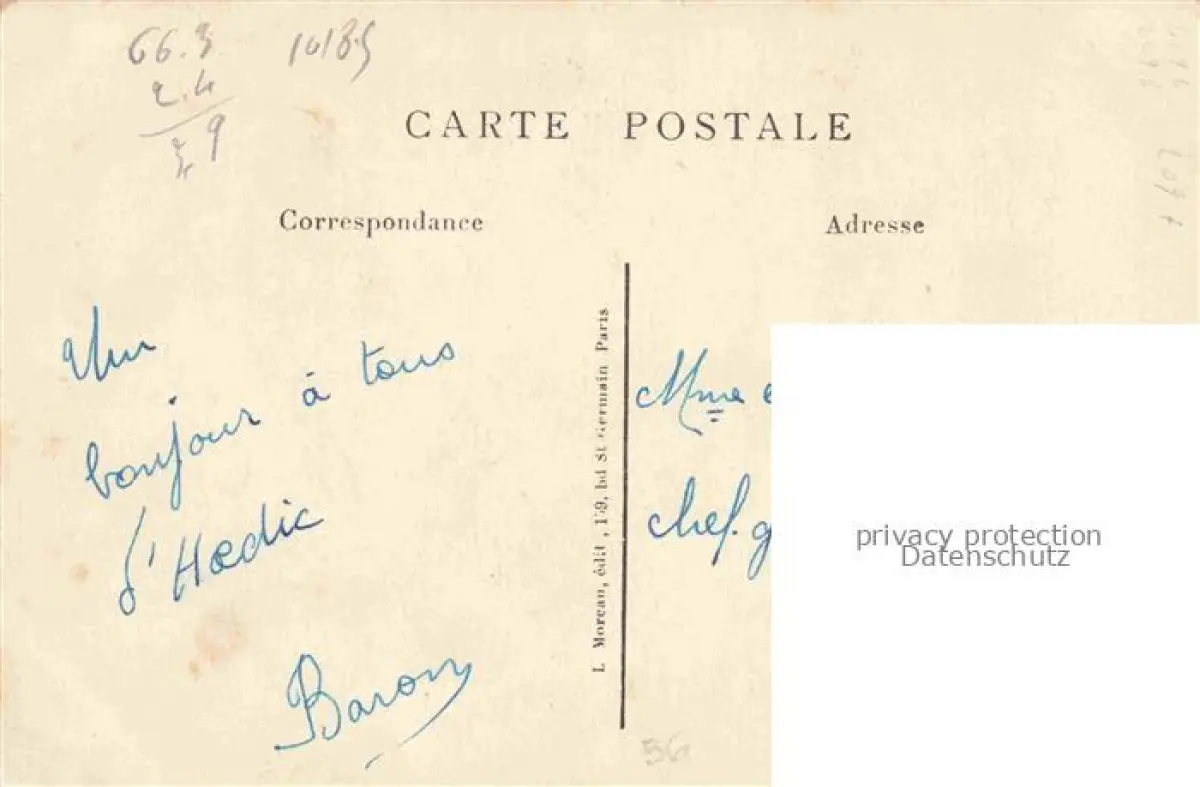 66.3 10185
2.4
CARTE POSTALE
Correspondance
Adresse
Un
bonjour à tous
d'Hœdic
Baron
L Moreau, édit, 159, bd St Germain Paris
Mme
chef. g
privacy protection
Datenschutz
56